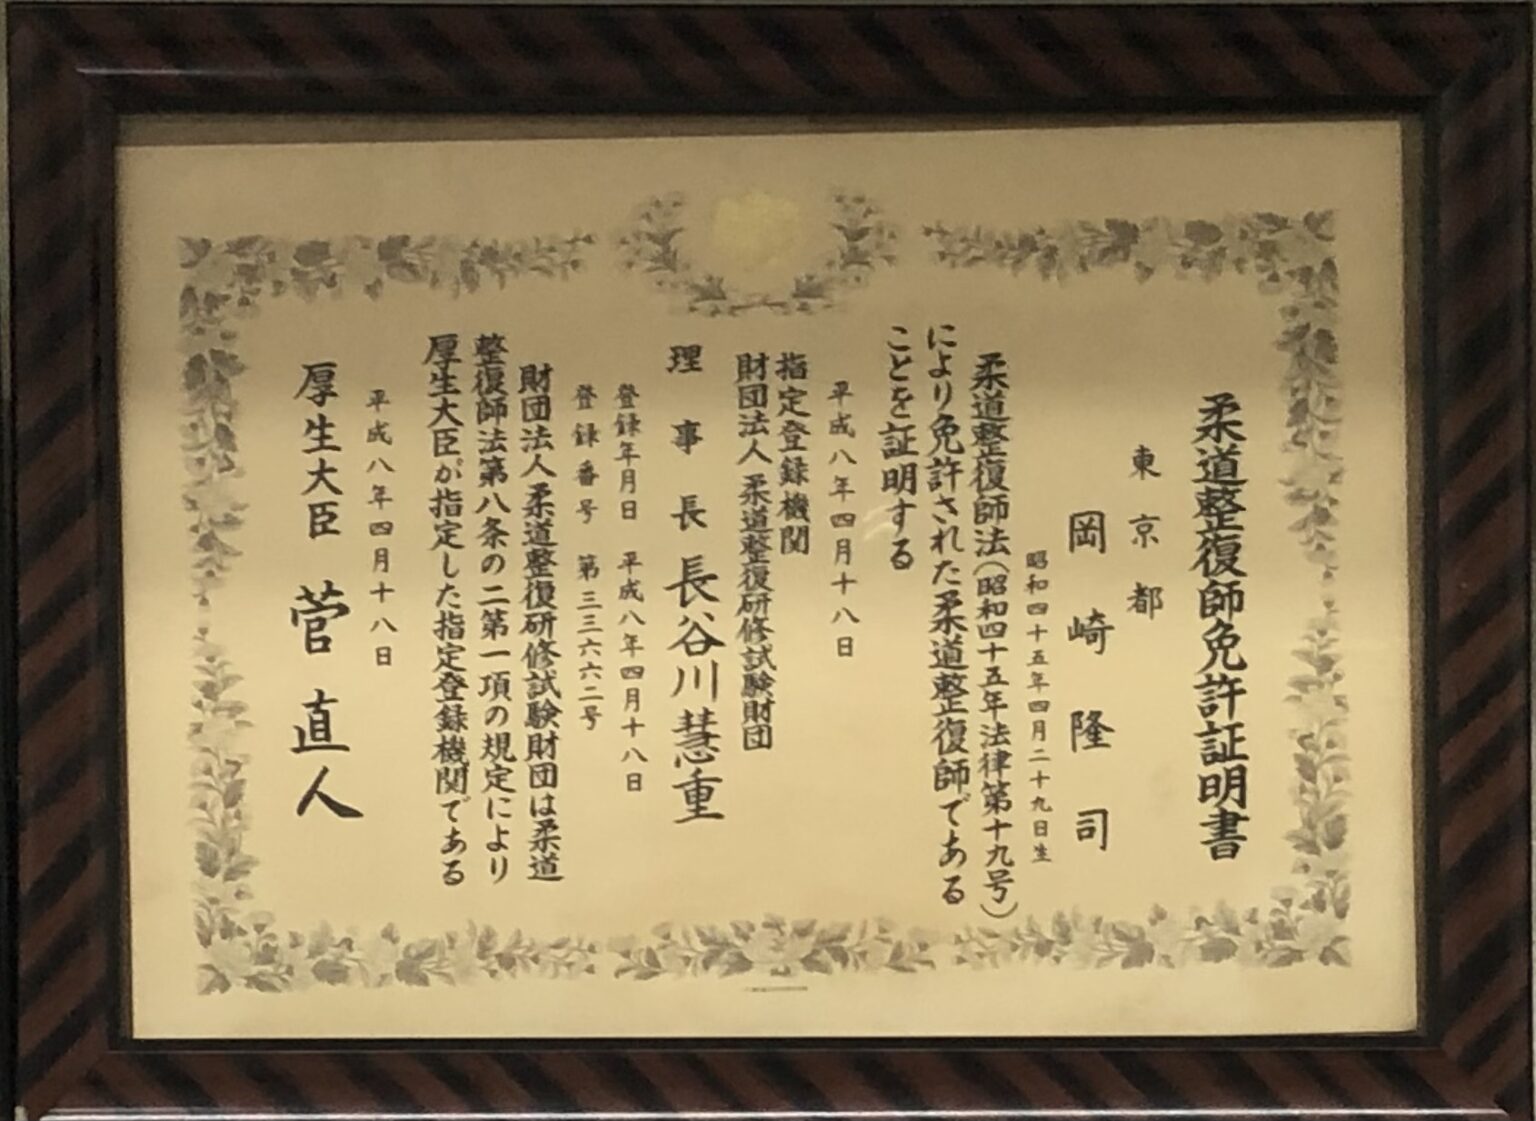 柔道整復師免許証明書
東京都
岡崎隆司
昭和四十五年四月二十九日生
柔道整復師法(昭和四十五年法律第十九号)
により免許された柔道整復師である
ことを証明する
平成八年四月十八日
指定登録機関
財団法人 柔道整復研修試験財団
理事長 長谷川慧重
登録年月日 平成八年四月十八日
登録番号 第三三六六二号
財団法人柔道整復研修試験財団は柔道
整復師法第八条の二第一項の規定により
厚生大臣が指定した指定登録機関である
平成八年四月十八日
厚生大臣 菅直人